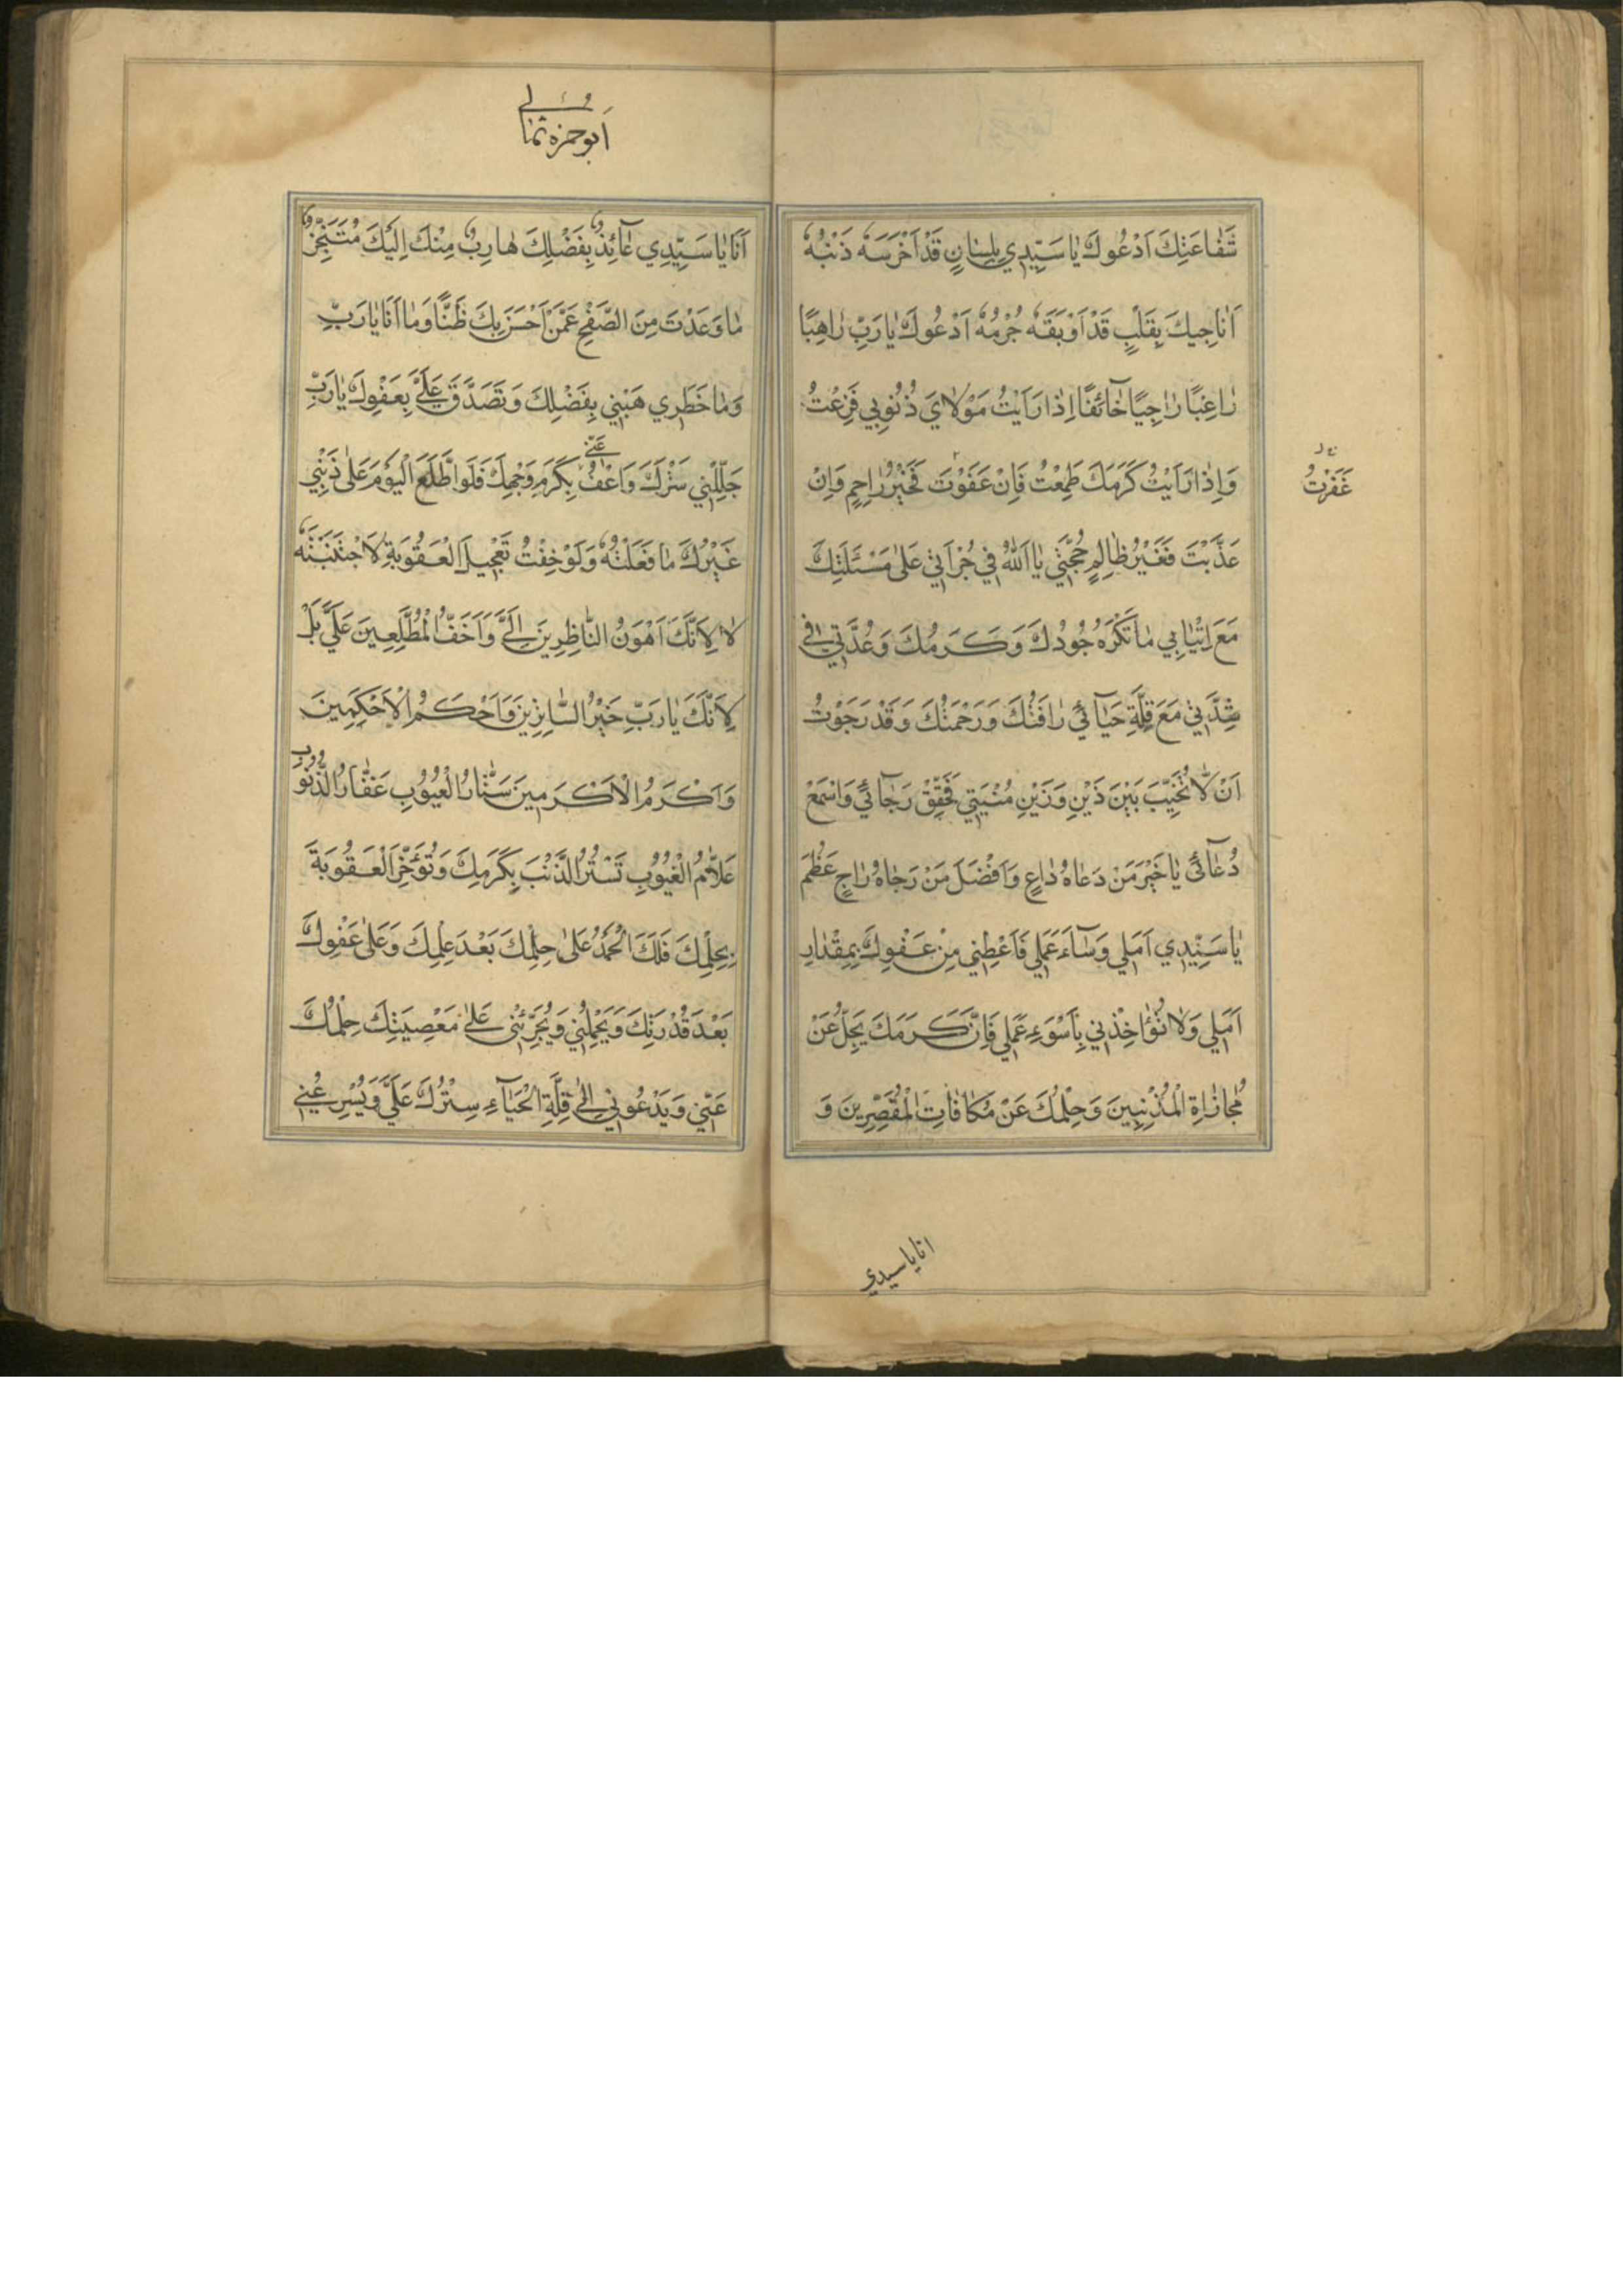 شَفٰاعَتِكَ اَدْعُوكَ يٰا سَيِّدِي بِلِسٰانٍ قَدْ اَخْرَسَهُ ذَنْبُهُ
اُنٰاجِيكَ بِقَلْبٍ قَدْ اَوْبَقَهُ جُرْمُهُ اَدْعُوكَ يٰا رَبِّ رٰاهِبًا
رٰاغِبًا رٰاجِيًا خٰآئِفًا اِذٰا رَاَيْتُ مَوْلٰايَ ذُنُوبِي فَزِعْتُ
وَاِذٰا رَاَيْتُ كَرَمَكَ طَمِعْتُ فَاِنْ عَفَوْتَ فَخَيْرُ رٰاحِمٍ وَاِنْ
غَفَرْتَ
عَذَّبْتَ فَغَيْرُ ظٰالِمٍ حُجَّتِي يٰا اَللّٰهُ فِي جُرْاَتِي عَلىٰ مَسْئَلَتِكَ
مَعَ اِتْيٰانِي مٰا تَكْرَهُ جُودُكَ وَكَرَمُكَ وَعُدَّتِي فِي
شِدَّتِي مَعَ قِلَّةِ حَيٰآئِي رَافَتُكَ وَرَحْمَتُكَ وَقَدْ رَجَوْتُ
اَنْ لٰا تُخَيِّبَ بَيْنَ ذَيْنِ وَزَيْنِ مُنْيَتِي فَحَقِّقْ رَجٰآئِي وَاسْمَعْ
دُعٰآئِي يٰا خَيْرَ مَنْ دَعٰاهُ دٰاعٍ وَاَفْضَلَ مَنْ رَجٰاهُ رٰاجٍ عَظُمَ
يٰا سَيِّدِي اَمَلِي وَسٰآءَ عَمَلِي فَاَعْطِنِي مِنْ عَفْوِكَ بِمِقْدٰارِ
اَمَلِي وَلٰا تُؤٰاخِذْنِي بِاَسْوَءِ عَمَلِي فَاِنَّ كَرَمَكَ يَجِلُّ عَنْ
مُجٰازٰاةِ الْمُذْنِبِينَ وَحِلْمُكَ عَنْ مُكٰافٰاتِ الْمُقَصِّرِينَ وَ
انا يا سيدي
اَبوحمزه ثمالى
اَنَا يٰا سَيِّدِي عٰآئِذٌ بِفَضْلِكَ هٰارِبٌ مِنْكَ اِلَيْكَ مُتَنَجِّزٌ
مٰا وَعَدْتَ مِنَ الصَّفْحِ عَمَّنْ اَحْسَنَ بِكَ ظَنًّا وَمٰا اَنَا يٰا رَبِّ
وَمٰا خَطَرِي هَبْنِي بِفَضْلِكَ وَتَصَدَّقْ عَلَيَّ بِعَفْوِكَ يٰا رَبِّ
جَلِّلْنِي سَتْرَكَ وَاعْفُ عَنِّي بِكَرَمِ وَجْهِكَ فَلَوِ اطَّلَعَ الْيَوْمَ عَلىٰ ذَنْبِي
غَيْرُكَ مٰا فَعَلْتُهُ وَلَوْ خِفْتُ تَعْجِيلَ الْعُقُوبَةِ لَاجْتَنَبْتُهُ
لٰا لِاَنَّكَ اَهْوَنُ النّٰاظِرِينَ اِلَيَّ وَاَخَفُّ الْمُطَّلِعِينَ عَلَيَّ بَلْ
لِاَنَّكَ يٰا رَبِّ خَيْرُ السّٰاتِرِينَ وَاَحْكَمُ الْاَحْكَمِينَ
وَاَكْرَمُ الْاَكْرَمِينَ سَتّٰارُ الْعُيُوبِ غَفّٰارُ الذُّنُوبِ
عَلّٰامُ الْغُيُوبِ تَسْتُرُ الذَّنْبَ بِكَرَمِكَ وَتُؤَخِّرُ الْعُقُوبَةَ
بِحِلْمِكَ فَلَكَ الْحَمْدُ عَلىٰ حِلْمِكَ بَعْدَ عِلْمِكَ وَعَلىٰ عَفْوِكَ
بَعْدَ قُدْرَتِكَ وَيَحْمِلُنِي وَيُجَرِّئُنِي عَلىٰ مَعْصِيَتِكَ حِلْمُكَ
عَنِّي وَيَدْعُونِي اِلىٰ قِلَّةِ الْحَيٰآءِ سِتْرُكَ عَلَيَّ وَيُسْرِعُنِي